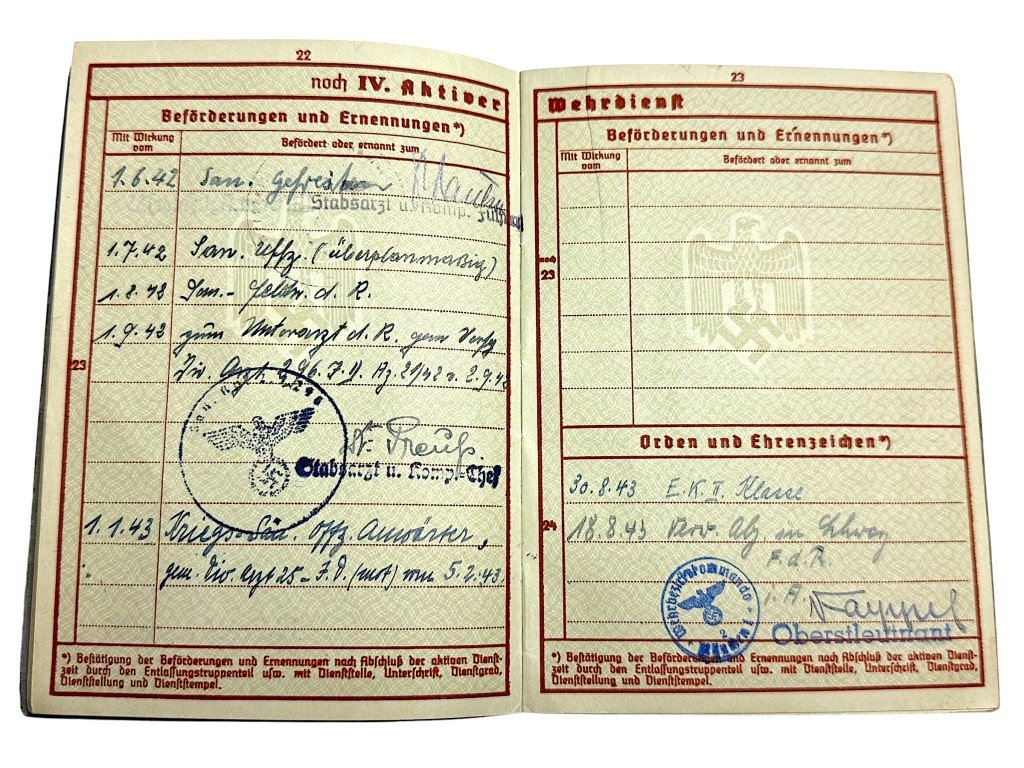 22
noch IV. Aktiver
Beförderungen und Ernennungen*)
Mit Wirkung vom
Befördert oder ernannt zum
1.6.42 San. Gefreiten
Stabsarzt u. Komp.
1.7.42 San. Uffz. (überplanmäßig)
1.8.42 San.- Feldw. d. R.
1.9.42 zum Unterarzt d. R. gem Verfg
23
Div. Arzt 296. J. D. Az. 21/42 v. 2.9.42
Dr. Preuß.
Stabsarzt u. Komp.-Chef
1.1.43 Kriegs-San. Offz. Anwärter,
gem. Div. Arzt 25 - J. D. (mot) vom 5.2.43.
*) Bestätigung der Beförderungen und Ernennungen nach Abschluß der aktiven Dienst-
zeit durch den Entlassungstruppenteil usw. mit Dienststelle, Unterschrift, Dienstgrad,
Dienststellung und Dienststempel.
23
Wehrdienst
Beförderungen und Ernennungen*)
Mit Wirkung vom
Befördert oder ernannt zum
noch
23
Orden und Ehrenzeichen*)
30.8.43 E.K. II. Klasse
24
18.8.43 Verw. Abz. in Schwarz
F.d.R.
i. A.
Oberstleutnant
Wehrbezirkskommando
München I
2
*) Bestätigung der Beförderungen und Ernennungen nach Abschluß der aktiven Dienst-
zeit durch den Entlassungstruppenteil usw. mit Dienststelle, Unterschrift, Dienstgrad,
Dienststellung und Dienststempel.